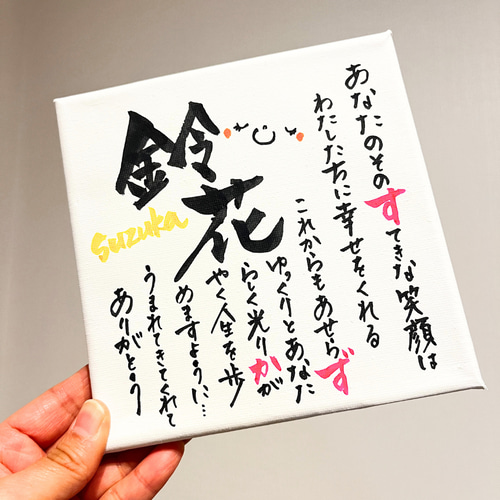 あなたのそのすてきな笑顔は
わたしたちに幸せをくれる
これからもあせらず
ゆっくりとあなた
らしく光りかが
やく人生を歩
めますように…
うまれてきてくれて
ありがとう
鈴花
suzuka